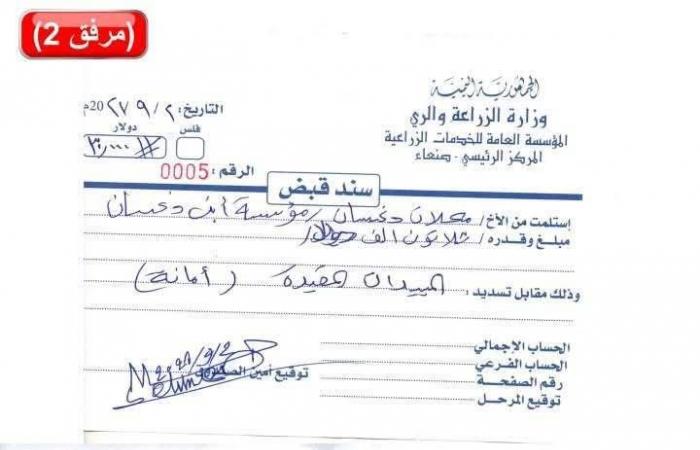 (مرفق 2)
الجمهورية اليمنية
وزارة الزراعة والري
المؤسسة العامة للخدمات الزراعية
المركز الرئيسي - صنعاء
التاريخ: ٢ / ٩ / 20م
فلس دولار
٣٠,٠٠٠
الرقم: 0005
سند قبض
إستلمت من الأخ / دغسان / مؤسسة أبن دغسان
مبلغ وقدره / ثلاثون الف دولار
وذلك مقابل تسديد : المبيدات المقيدة (أمانة)
الحساب الإجمالي
الحساب الفرعي
رقم الصفحة
توقيع المرحل
توقيع أمين الصندوق